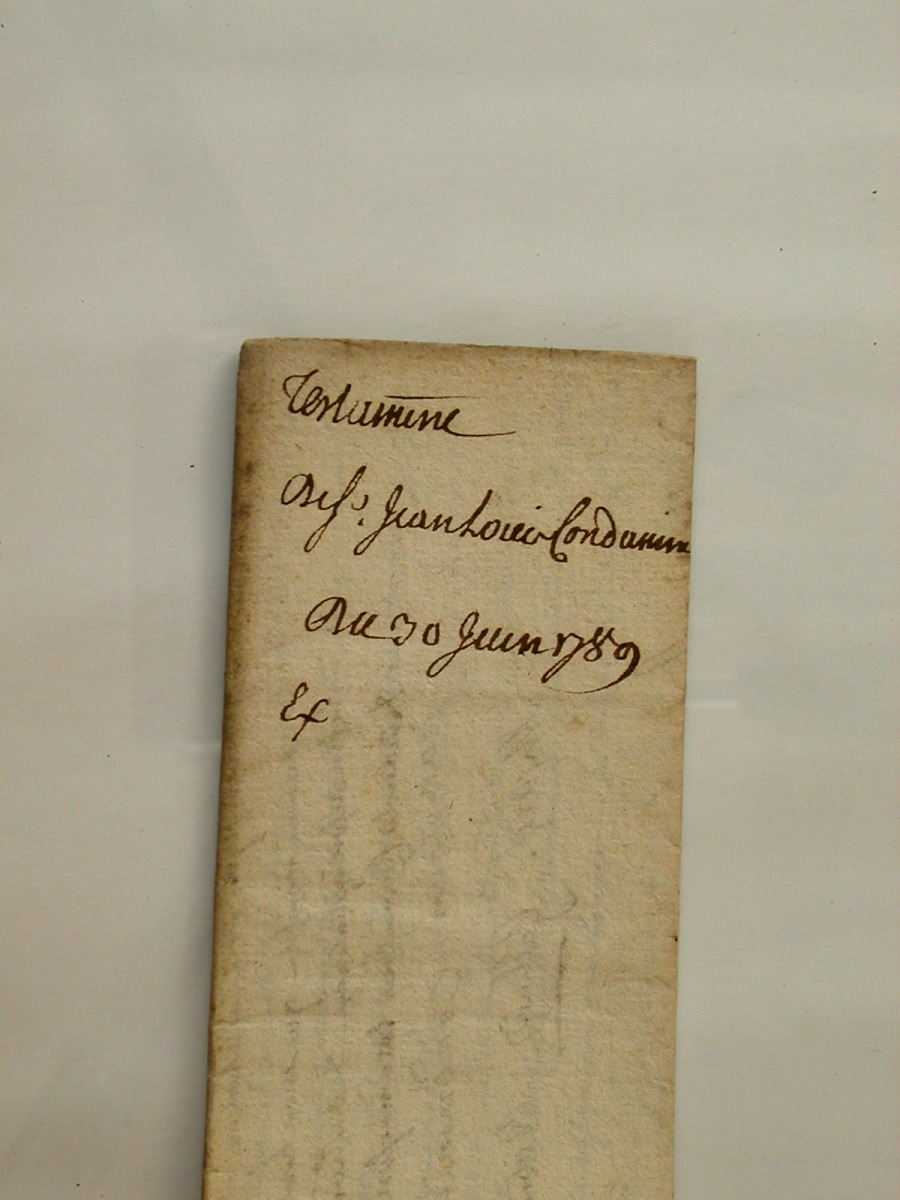 Testament
De Sr. Jean Louis Condamine
Du 30 Juin 1789
Ex